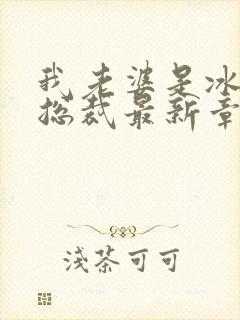 我老婆是冰
总裁最新章
浅茶可可